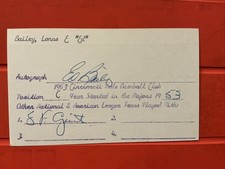 Bailey, Lonas E "Ed"
Autograph Ed Bailey
1953 Cincinnati Reds Baseball Club
Position C Year Started in the Majors 1953
Other National & American League Teams Played With
1. S.F. Giants 3.
2. 4.